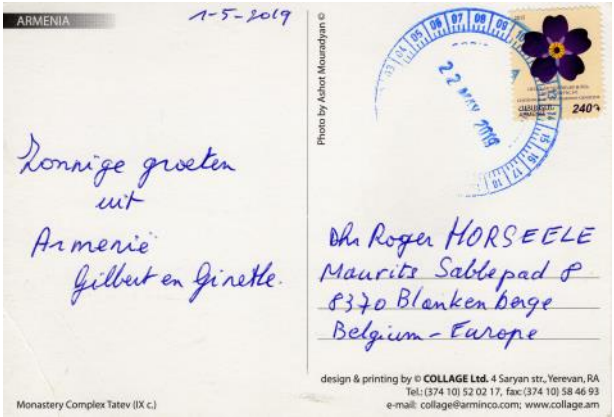 ARMENIA
1-5-2019
Zonnige groeten
uit
Armenië
Gilbert en Ginette.
Monastery Complex Tatev (IX c.)
Photo by Ashot Mouradyan ©
03 04 05 06 07 08 09 10
13 14 15 16 17 18
22 MAY 2019
240
Dhr Roger HORSEELE
Maurits Sabbepad 8
8370 Blankenberge
Belgium - Europe
design & printing by © COLLAGE Ltd. 4 Saryan str., Yerevan, RA
Tel.: (374 10) 52 02 17, fax: (374 10) 58 46 93
e-mail: collage@arminco.com; www.collage.am